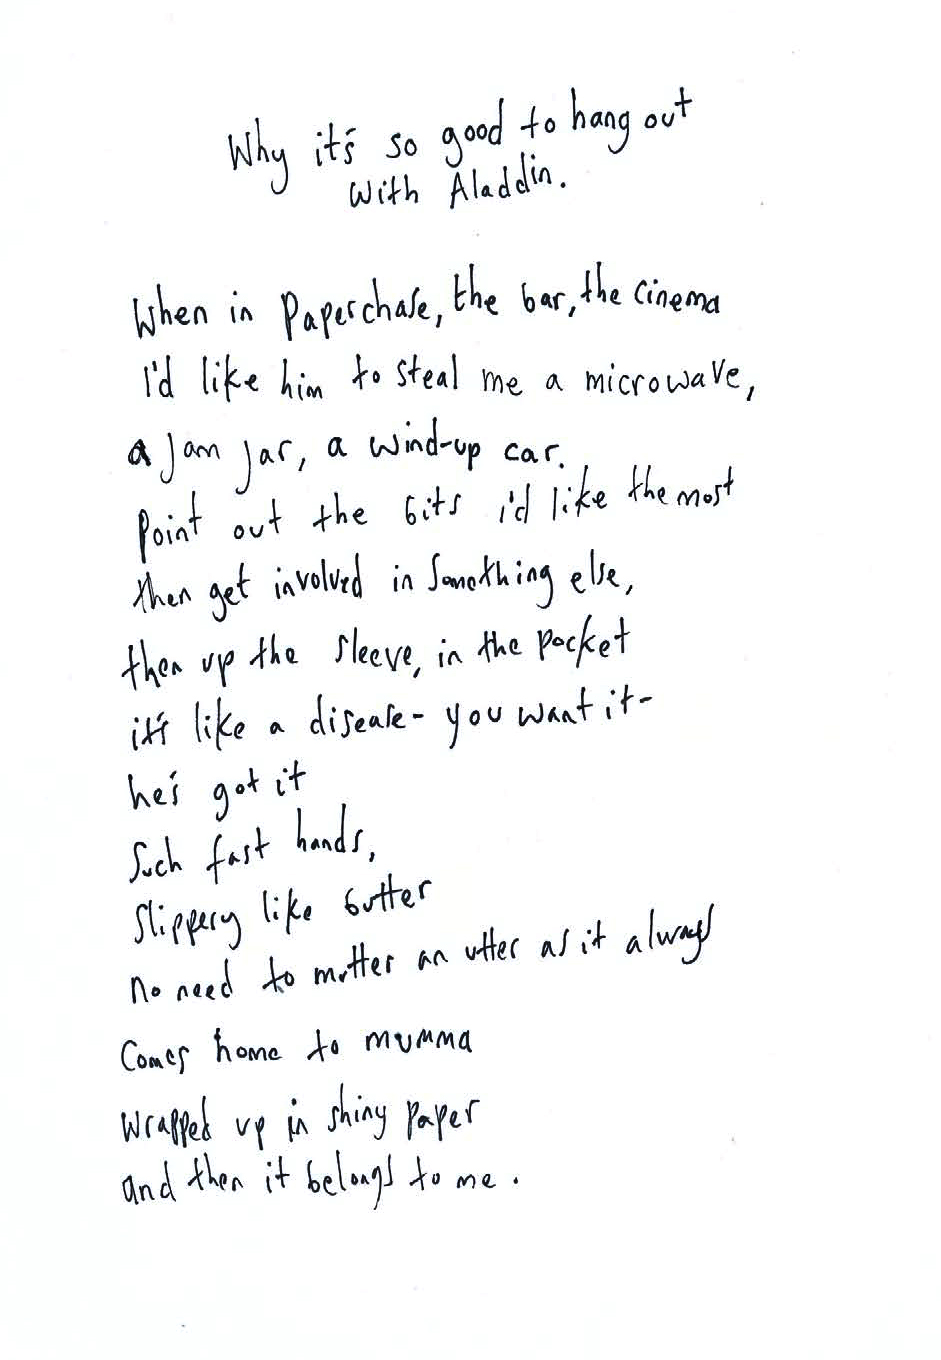 Why it's so good to hang out
with Aladdin.
When in Paperchase, the bar, the cinema
I'd like him to steal me a microwave,
a jam jar, a wind-up car.
Point out the bits i'd like the most
then get involved in something else,
then up the sleeve, in the pocket
it's like a disease - you want it -
he's got it
Such fast hands,
slippery like butter
no need to mutter an utter as it always
comes home to mumma
wrapped up in shiny paper
and then it belongs to me.